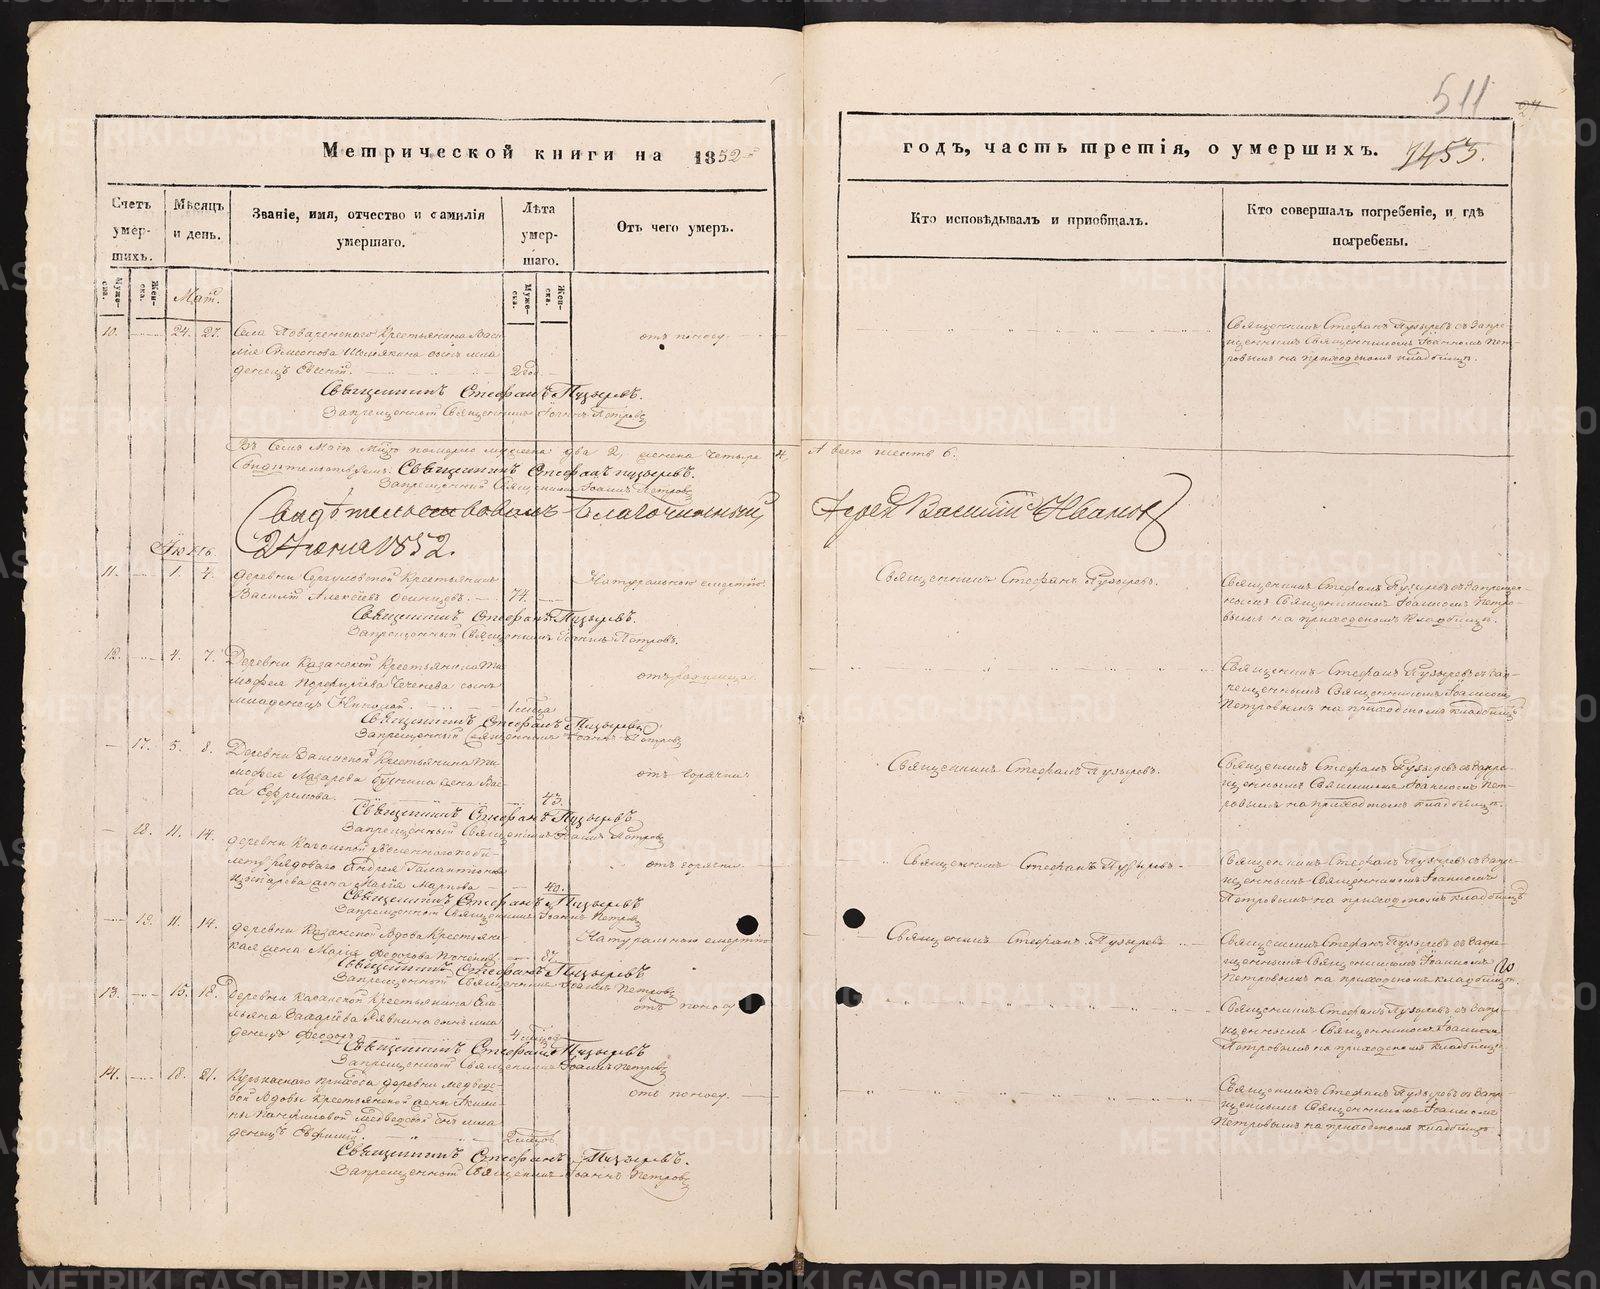 511
Метрической книги на 1852й
годъ, часть третія, о умершихъ.
1453.
Счетъ умер-шихъ.
Мѣсяцъ и день.
Званіе, имя, отчество и фамилія умершаго.
Лѣта умер-шаго.
Отъ чего умеръ.
Кто исповѣдывалъ и пріобщалъ.
Кто совершалъ погребеніе, и гдѣ погребены.
Муже-ска.
Жен-ска.
Муже-ска.
Жен-ска.
Маій.
10. 24. 27.
Села Крестьянина Васи-
лія Симеонова сынъ мла-
денецъ 2 год.
отъ поносу.
Священникъ Стефанъ Пузыревъ съ запре-
щеннымъ Священникомъ Іоанномъ Пет-
ровымъ на приходскомъ кладбищѣ.
Священникъ Стефанъ Пузыревъ.
Запрещенный Священникъ Іоаннъ Петровъ
Въ семъ Маѣ мцѣ померло мужеска два 2, женска четыре 4, А всего шесть 6.
Свидѣтельствуемъ: Священникъ Стефанъ Пузыревъ.
Запрещенный Священникъ Іоаннъ Петровъ
Свидѣтельствовалъ Благочинный Іерей Василій Ивановъ
2 Іюня 1852.
Іюнь.
11. 1. 4.
деревни Крестьянинъ
Василій Алексѣевъ 74.
Натуральною смертію.
Священникъ Стефанъ Пузыревъ.
Священникъ Стефанъ Пузыревъ съ запрещен-
нымъ Священникомъ Іоанномъ Петро-
вымъ на приходскомъ кладбищѣ.
Священникъ Стефанъ Пузыревъ.
Запрещенный Священникъ Іоаннъ Петровъ.
12. 4. 7.
Деревни Казанской Крестьянина Ти-
мофея Порфирьева сынъ
младенецъ Николай. 1 мца
отъ родимца.
Священникъ Стефанъ Пузыревъ съ зап-
рещеннымъ Священникомъ Іоанномъ
Петровымъ на приходскомъ кладбищѣ
Священникъ Стефанъ Пузыревъ
Запрещенный Священникъ Іоаннъ Петровъ
17. 5. 8.
Деревни Крестьянина Ти-
мофея жена Вас-
са Ефремова. 43.
отъ горячки.
Священникъ Стефанъ Пузыревъ.
Священникъ Стефанъ Пузыревъ съ запре-
щеннымъ Священникомъ Іоанномъ Пет-
ровымъ на приходскомъ кладбищѣ.
Священникъ Стефанъ Пузыревъ
Запрещенный Священникъ Іоаннъ Петровъ
18. 11. 14.
деревни Казанской
рядоваго Андрея
жена Марія Маркова 40.
отъ горячки
Священникъ Стефанъ Пузыревъ.
Священникъ Стефанъ Пузыревъ съ запре-
щеннымъ Священникомъ Іоанномъ
Петровымъ на приходскомъ кладбищѣ
Священникъ Стефанъ Пузыревъ
Запрещенный Священникъ Іоаннъ Петровъ
19. 11. 14.
деревни Казанской вдова Крестьян-
ская жена Марія Федорова
Натуральною смертію
Священникъ Стефанъ Пузыревъ
Священникъ Стефанъ Пузыревъ съ запре-
щеннымъ Священникомъ Іоанномъ
Петровымъ на приходскомъ кладбищѣ.
Священникъ Стефанъ Пузыревъ
Запрещенный Священникъ Іоаннъ Петровъ
13. 15. 18.
Деревни Казанской Крестьянина
Захарьева сынъ мла-
денецъ Феодоръ 4 мцовъ
отъ поносу
Священникъ Стефанъ Пузыревъ съ запре-
щеннымъ Священникомъ Іоанномъ
Петровымъ на приходскомъ кладбищѣ.
Священникъ Стефанъ Пузыревъ
Запрещенный Священникъ Іоаннъ Петровъ
14. 18. 21.
прихода деревни Медведе-
вой вдовы Крестьянской жены Акили-
ны сынъ мла-
денецъ 2 мцовъ.
отъ поносу.
Священникъ Стефанъ Пузыревъ съ запре-
щеннымъ Священникомъ Іоанномъ
Петровымъ на приходскомъ кладбищѣ.
Священникъ Стефанъ Пузыревъ.
Запрещенный Священникъ Іоаннъ Петровъ
METRIKI.GASO-URAL.RU